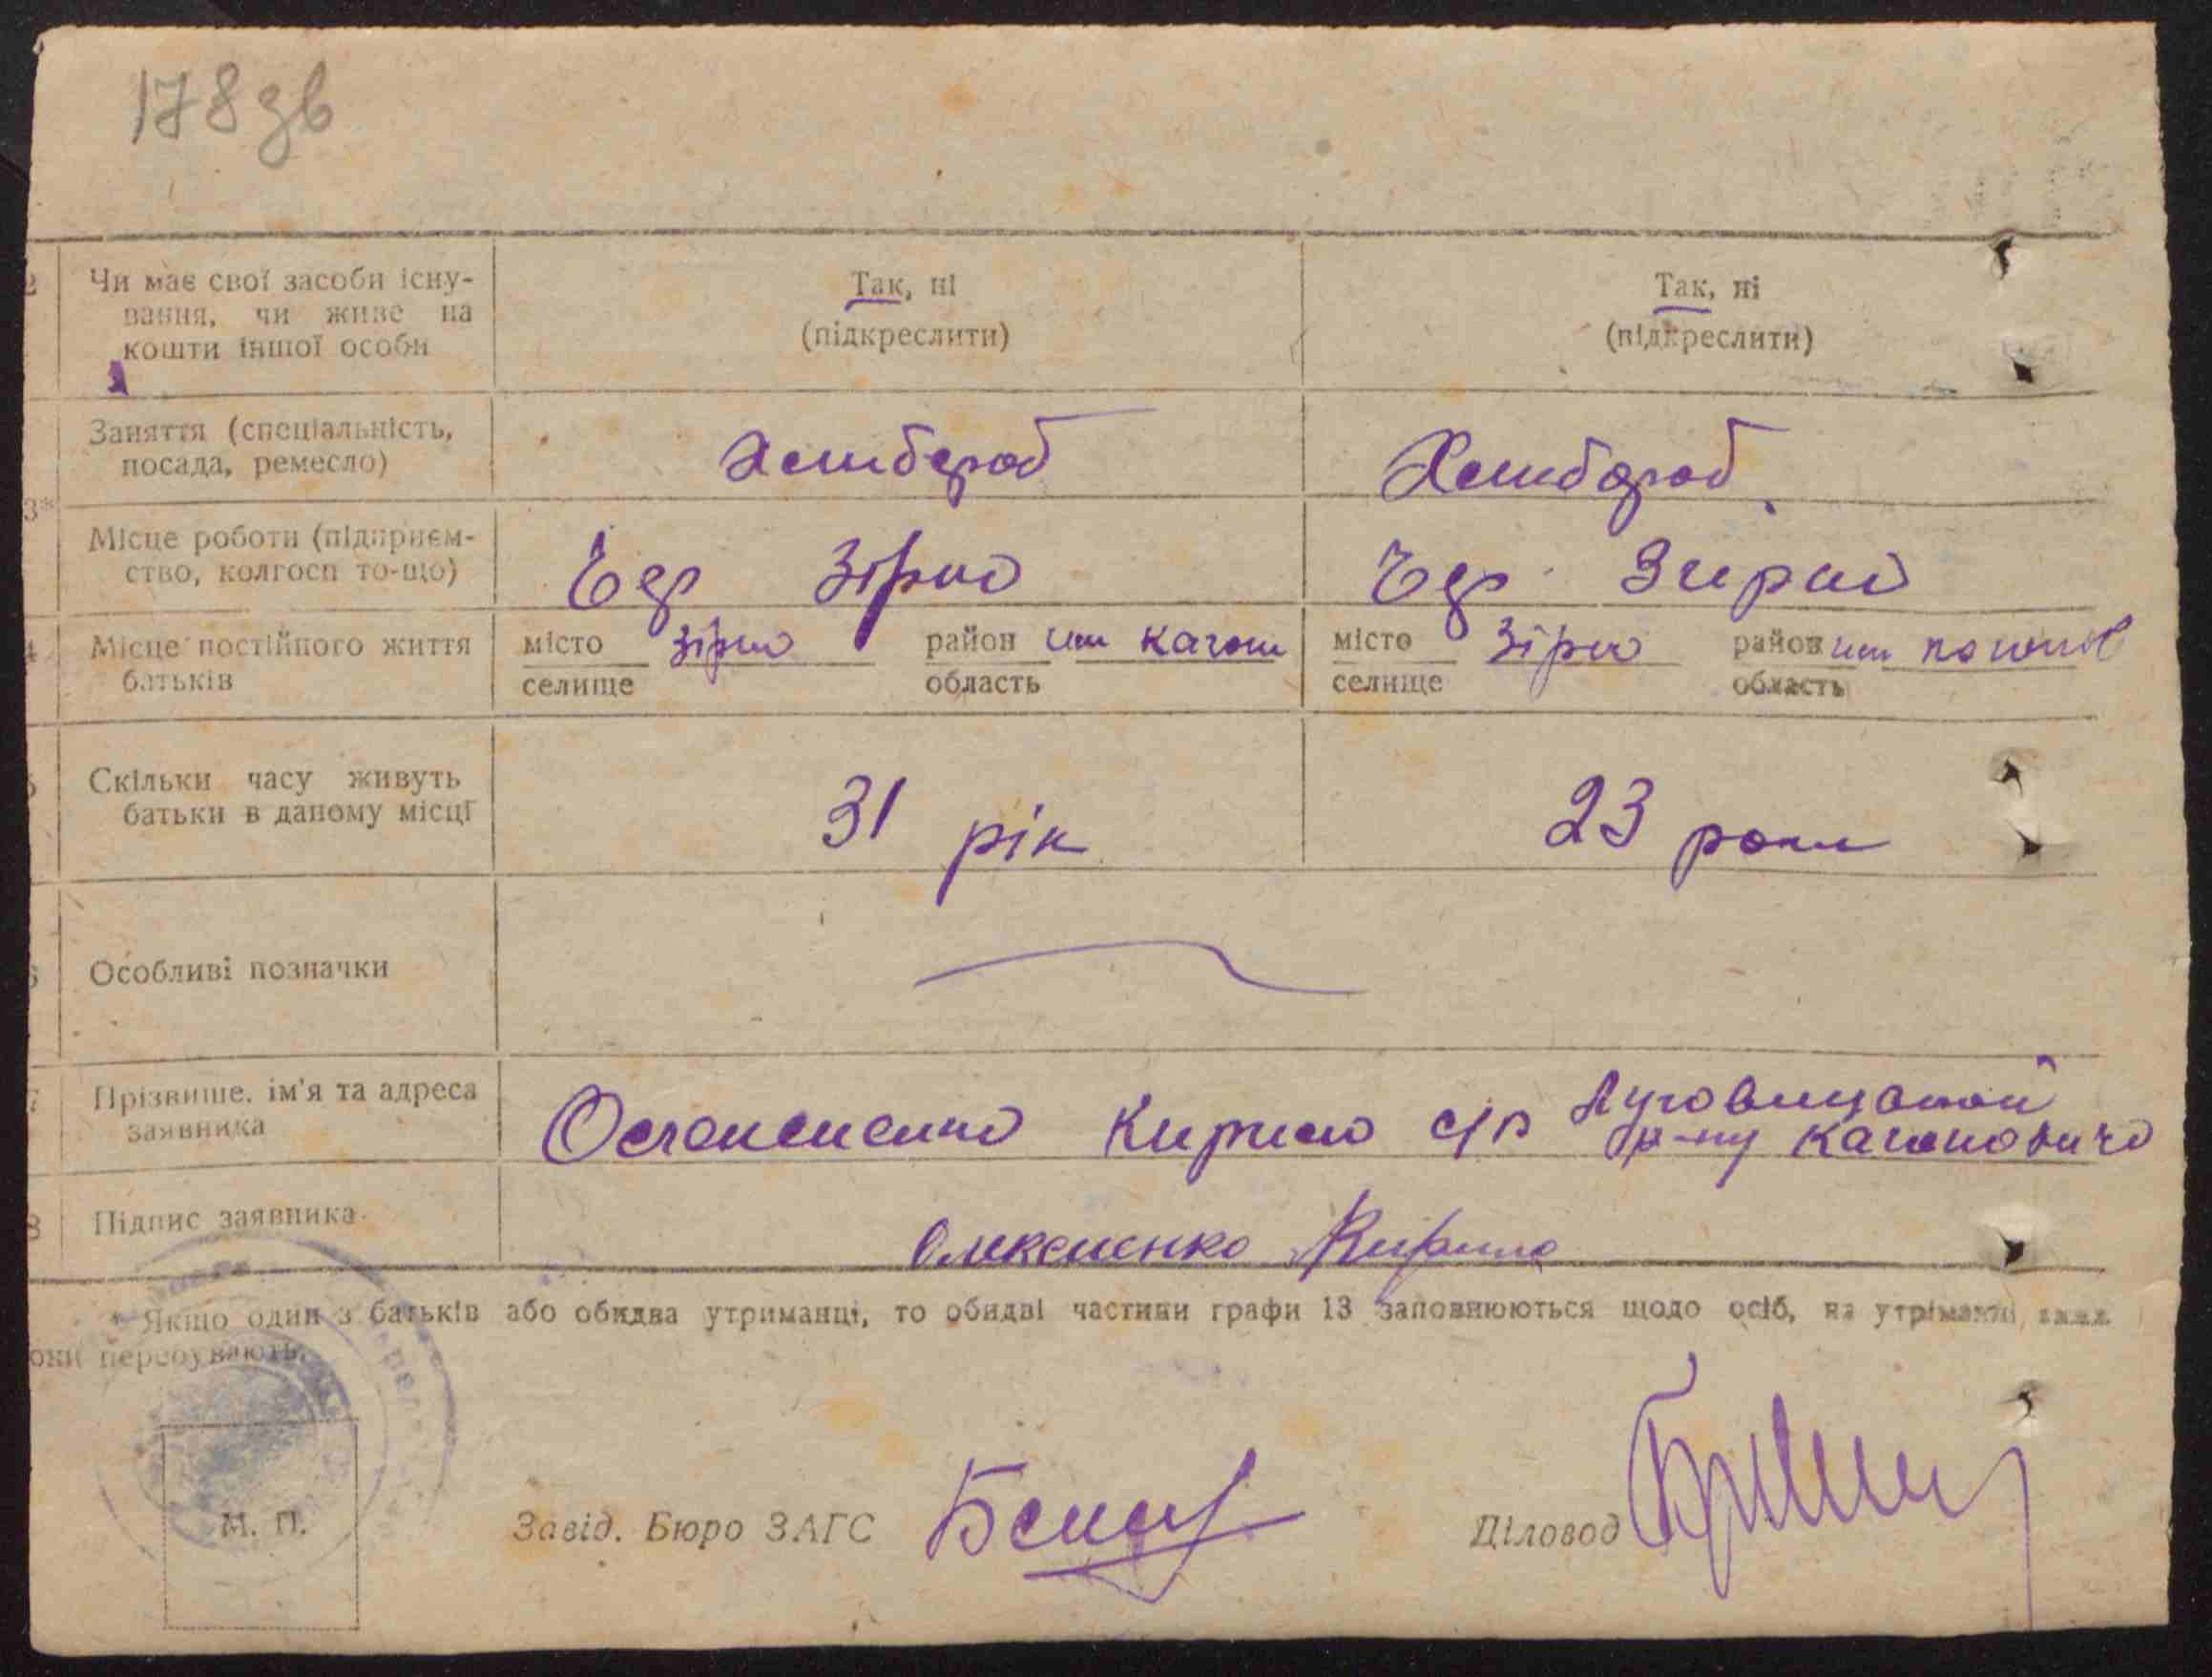 178 зв
2 Чи має свої засоби існу- Так, ні Так, ні
вання, чи живе на (підкреслити) (підкреслити)
кошти іншої особи
Заняття (спеціальність, Хлибороб Хлибороб
посада, ремесло)
3*
Місце роботи (підприєм- Зірка Зирка
ство, колгосп то-що)
4 Місце постійного життя місто Зірка район им Каган місто Зірка район им
батьків селище область селище область
Скільки часу живуть 31 рік 23 роки
батьки в даному місці
6 Особливі позначки
7 Прізвище, ім'я та адреса Олексиенко Кирило с/р Луговицької
заявника р-ну Кагановича
8 Підпис заявника Олексиенко Кирило
* Якщо один з батьків або обидва утриманці, то обидві частини графи 13 заповнюються щодо осіб, на утриманні яких
вони перебувають.
М. П. Завід. Бюро ЗАГС Діловод